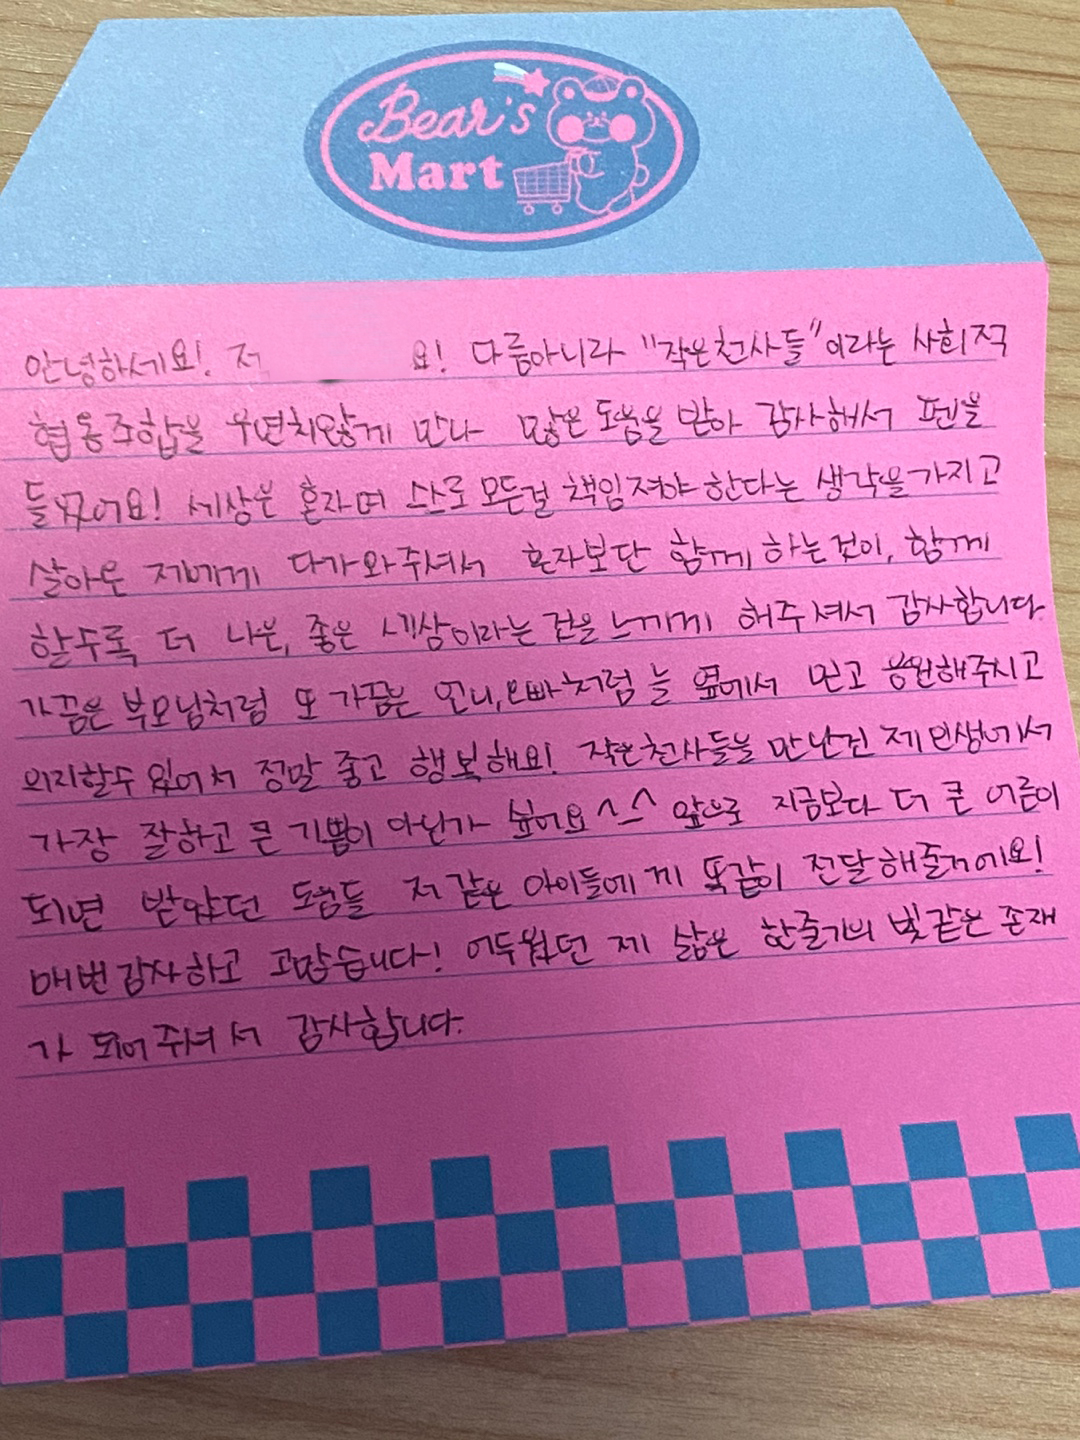 Bear's
Mart
안녕하세요! 저 요! 다름아니라 "작은천사들"이라는 사회적
협동조합을 우연치않게 만나 많은 도움을 받아 감사해서 펜을
들었어요! 세상은 혼자며 스스로 모든걸 책임져야 한다는 생각을 가지고
살아온 저에게 다가와주셔서 혼자보단 함께 하는것이, 함께
할수록 더 나은, 좋은 세상이라는 것을 느끼게 해주셔서 감사합니다.
가끔은 부모님처럼 또 가끔은 언니,오빠처럼 늘 옆에서 믿고 응원해주시고
의지할수 있어서 정말 좋고 행복해요! 작은천사들을 만난건 제 인생에서
가장 잘하고 큰 기쁨이 아닌가 싶어요 ^_^ 앞으로 지금보다 더 큰 어른이
되면 받았던 도움들 저 같은 아이들에게 똑같이 전달해줄거에요!
매번 감사하고 고맙습니다! 어두웠던 제 삶은 한줄기의 빛같은 존재
가 되어주셔서 감사합니다.